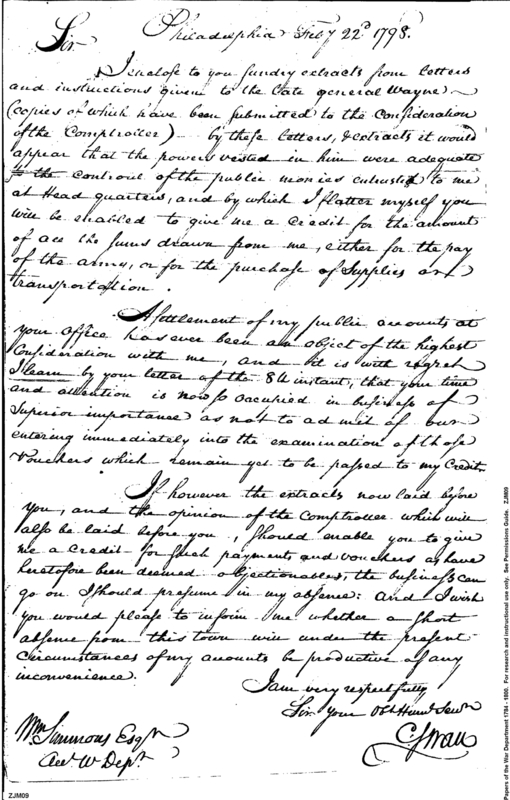 Philadelphia Feby 22d 1798.
Sir
I enclose to you sundry extracts from letters
and instructions given to the late general Wayne
(copies of which have been submitted to the consideration
of the Comptroller) by these letters, & extracts it would
appear that the powers vested in him were adequate
to the controul of the public monies entrusted to me
at Head quarters, and by which I flatter myself you
will be enabled to give me a Credit for the amount
of all the sums drawn from me, either for the pay
of the army, or for the purchase of Supplies and
transportation.
A settlement of my public accounts at
your office has ever been an object of the highest
Consideration with me, and it is with regret
I learn by your letter of the 8th instant, that your time
and attention is now so occupied in business of
Superior importance as not to admit of our
entering immediately into the examination of those
Vouchers which remain yet to be passed to my Credit.
If however the extracts now laid before
you, and the opinion of the Comptroller which will
also be laid before you, Should enable you to give
me a Credit for such payments and vouchers as have
heretofore been deemed objectionable, the business can
go on I should presume in my absence: and I wish
you would please to inform me whether a short
absence from this town will under the present
Circumstances of my accounts be productive of any
inconvenience.
I am very respectfully
Sir Your Obt Humb Servt
C Swan
Wm Simmons Esqr
Acct W Dept.
ZJM09
Papers of the War Department 1784 - 1800. For research and instructional use only. See Permissions Guide. ZJM09